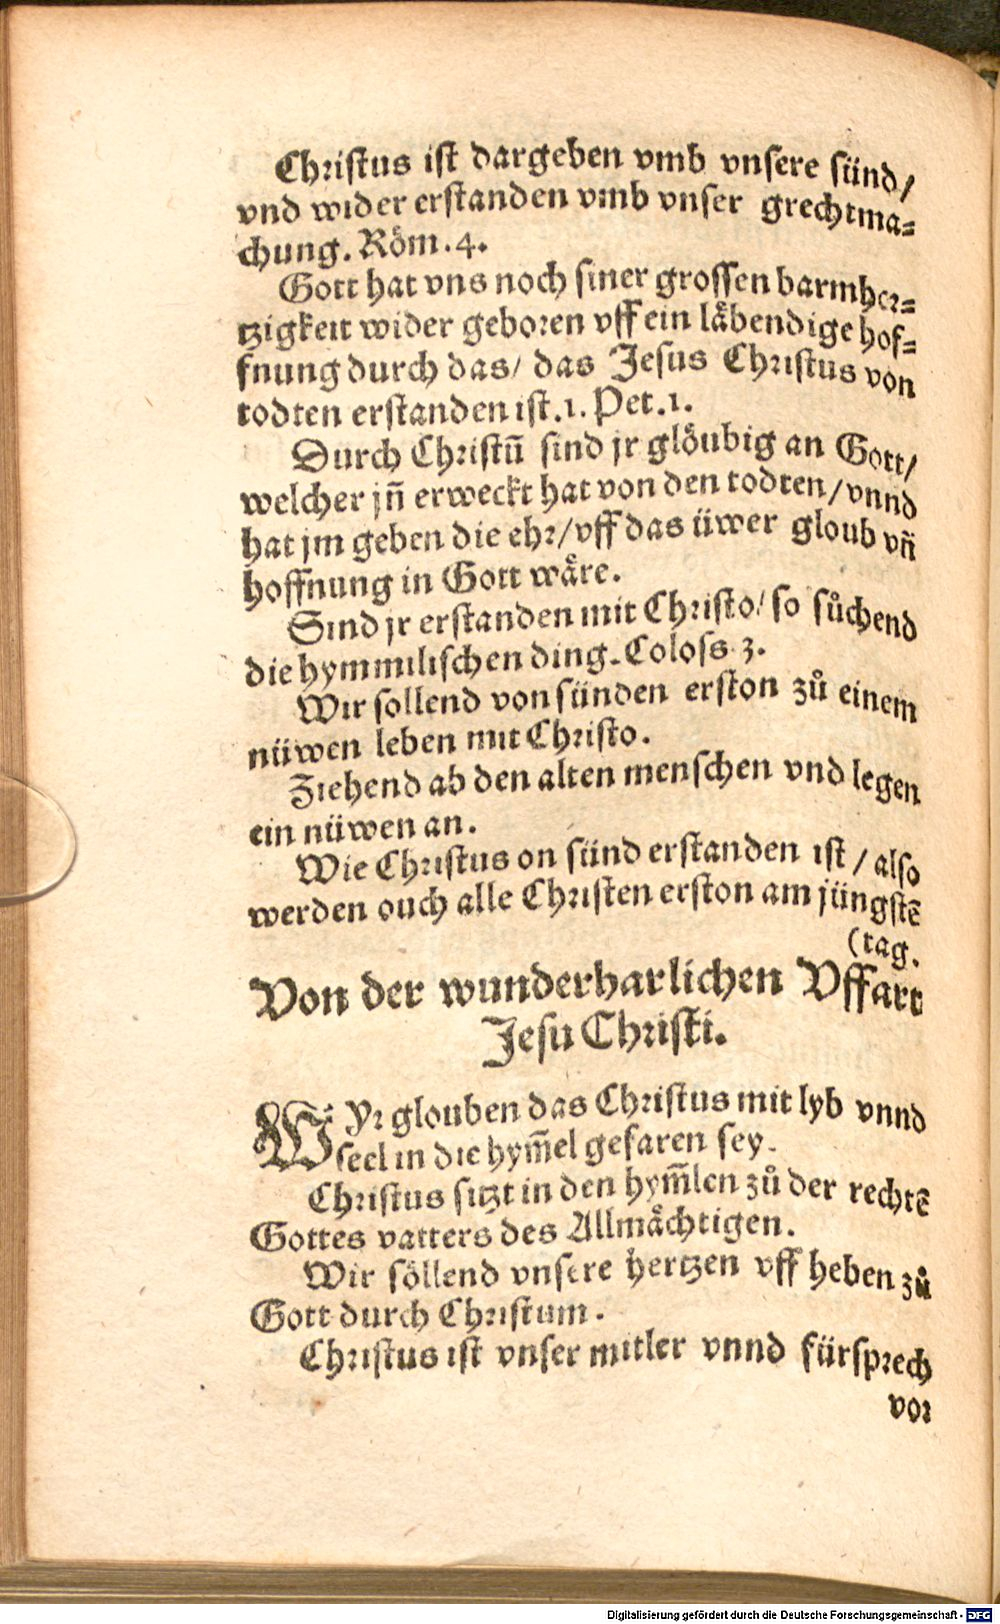 Christus ist dargeben vmb vnsere sünd/
vnd wider erstanden vmb vnser grechtma-
chung. Röm. 4.
Gott hat vns noch siner grossen barmher-
tzigkeit wider geboren vff ein läbendige hof-
fnung durch das/ das Jesus Christus von
todten erstanden ist. 1. Pet. 1.
Durch Christū sind jr glöubig an Gott/
welcher jn̄ erweckt hat von den todten/ vnnd
hat jm geben die ehr/ vff das üwer gloub vn̄
hoffnung in Gott wäre.
Sind jr erstanden mit Christo/ so sůchend
die hymmlischen ding. Coloss. 3.
Wir sollend von sünden erston zů einem
nüwen leben mit Christo.
Ziehend ab den alten menschen vnd legen
ein nüwen an.
Wie Christus on sünd erstanden ist / also
werden ouch alle Christen erston am jüngstē
(tag.
Von der wunderharlichen Vffart
Jesu Christi.
WYr glouben das Christus mit lyb vnnd
seel in die hym̄el gefaren sey.
Christus sitzt in den hym̄len zů der rechtē
Gottes vatters des Allmächtigen.
Wir söllend vnsere hertzen vff heben zů
Gott durch Christum.
Christus ist vnser mitler vnnd fürsprech
vor
Digitalisierung gefördert durch die Deutsche Forschungsgemeinschaft - DFG